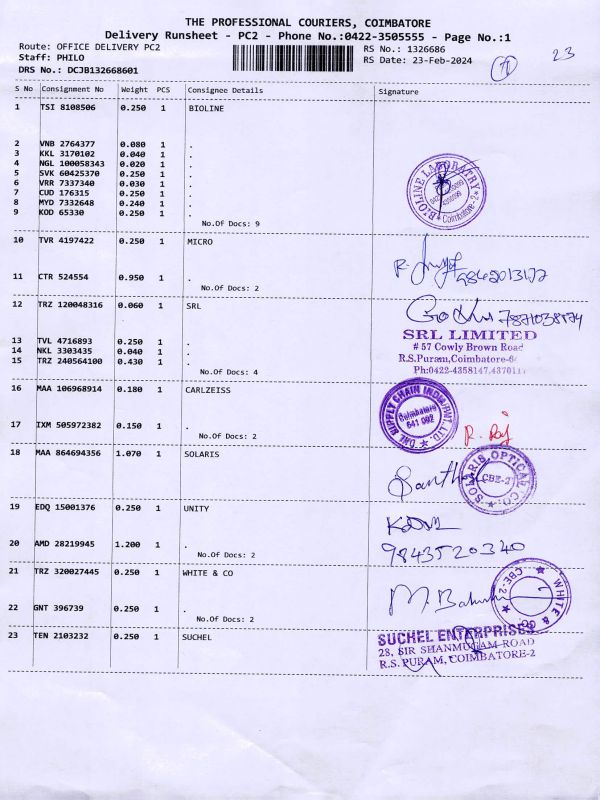 THE PROFESSIONAL COURIERS, COIMBATORE
Delivery Runsheet - PC2 - Phone No.:0422-3505555 - Page No.:1
Route: OFFICE DELIVERY PC2 RS No.: 1326686
Staff: PHILO RS Date: 23-Feb-2024
DRS No.: DCJB132668601
23
S No Consignment No Weight PCS Consignee Details Signature
1 TSI 8108506 0.250 1 BIOLINE
2 VNB 2764377 0.080 1 .
3 KKL 3170102 0.040 1 .
4 NGL 100058343 0.020 1 .
5 SVK 60425370 0.250 1 .
6 VRR 7337340 0.030 1 .
7 CUD 176315 0.250 1 .
8 MYD 7332648 0.240 1 .
9 KOD 65330 0.250 1 .
No.Of Docs: 9
BIOLINE LABORATRY
Coimbatore-2
10 TVR 4197422 0.250 1 MICRO
11 CTR 524554 0.950 1 .
No.Of Docs: 2
12 TRZ 120048316 0.060 1 SRL
13 TVL 4716893 0.250 1 .
14 NKL 3303435 0.040 1 .
15 TRZ 240564100 0.430 1 .
No.Of Docs: 4
SRL LIMITED
# 57 Cowly Brown Road
R.S.Puram,Coimbatore-6
Ph:0422-4358147,437011
16 MAA 106968914 0.180 1 CARLZEISS
17 IXM 505972382 0.150 1 .
No.Of Docs: 2
DHL SUPPLY CHAIN INDIA PVT. LTD.
Coimbatore
641 002
R. Raj
18 MAA 864694356 1.070 1 SOLARIS
SOLARIS OPTICAL CO.
CBE-2
19 EDQ 15001376 0.250 1 UNITY
20 AMD 28219945 1.200 1 .
No.Of Docs: 2
9843520340
21 TRZ 320027445 0.250 1 WHITE & CO
22 GNT 396739 0.250 1 .
No.Of Docs: 2
WHITE & CO
CBE-2
23 TEN 2103232 0.250 1 SUCHEL
SUCHEL ENTERPRISES
28, SIR SHANMUGAM ROAD
R.S. PURAM, COIMBATORE-2